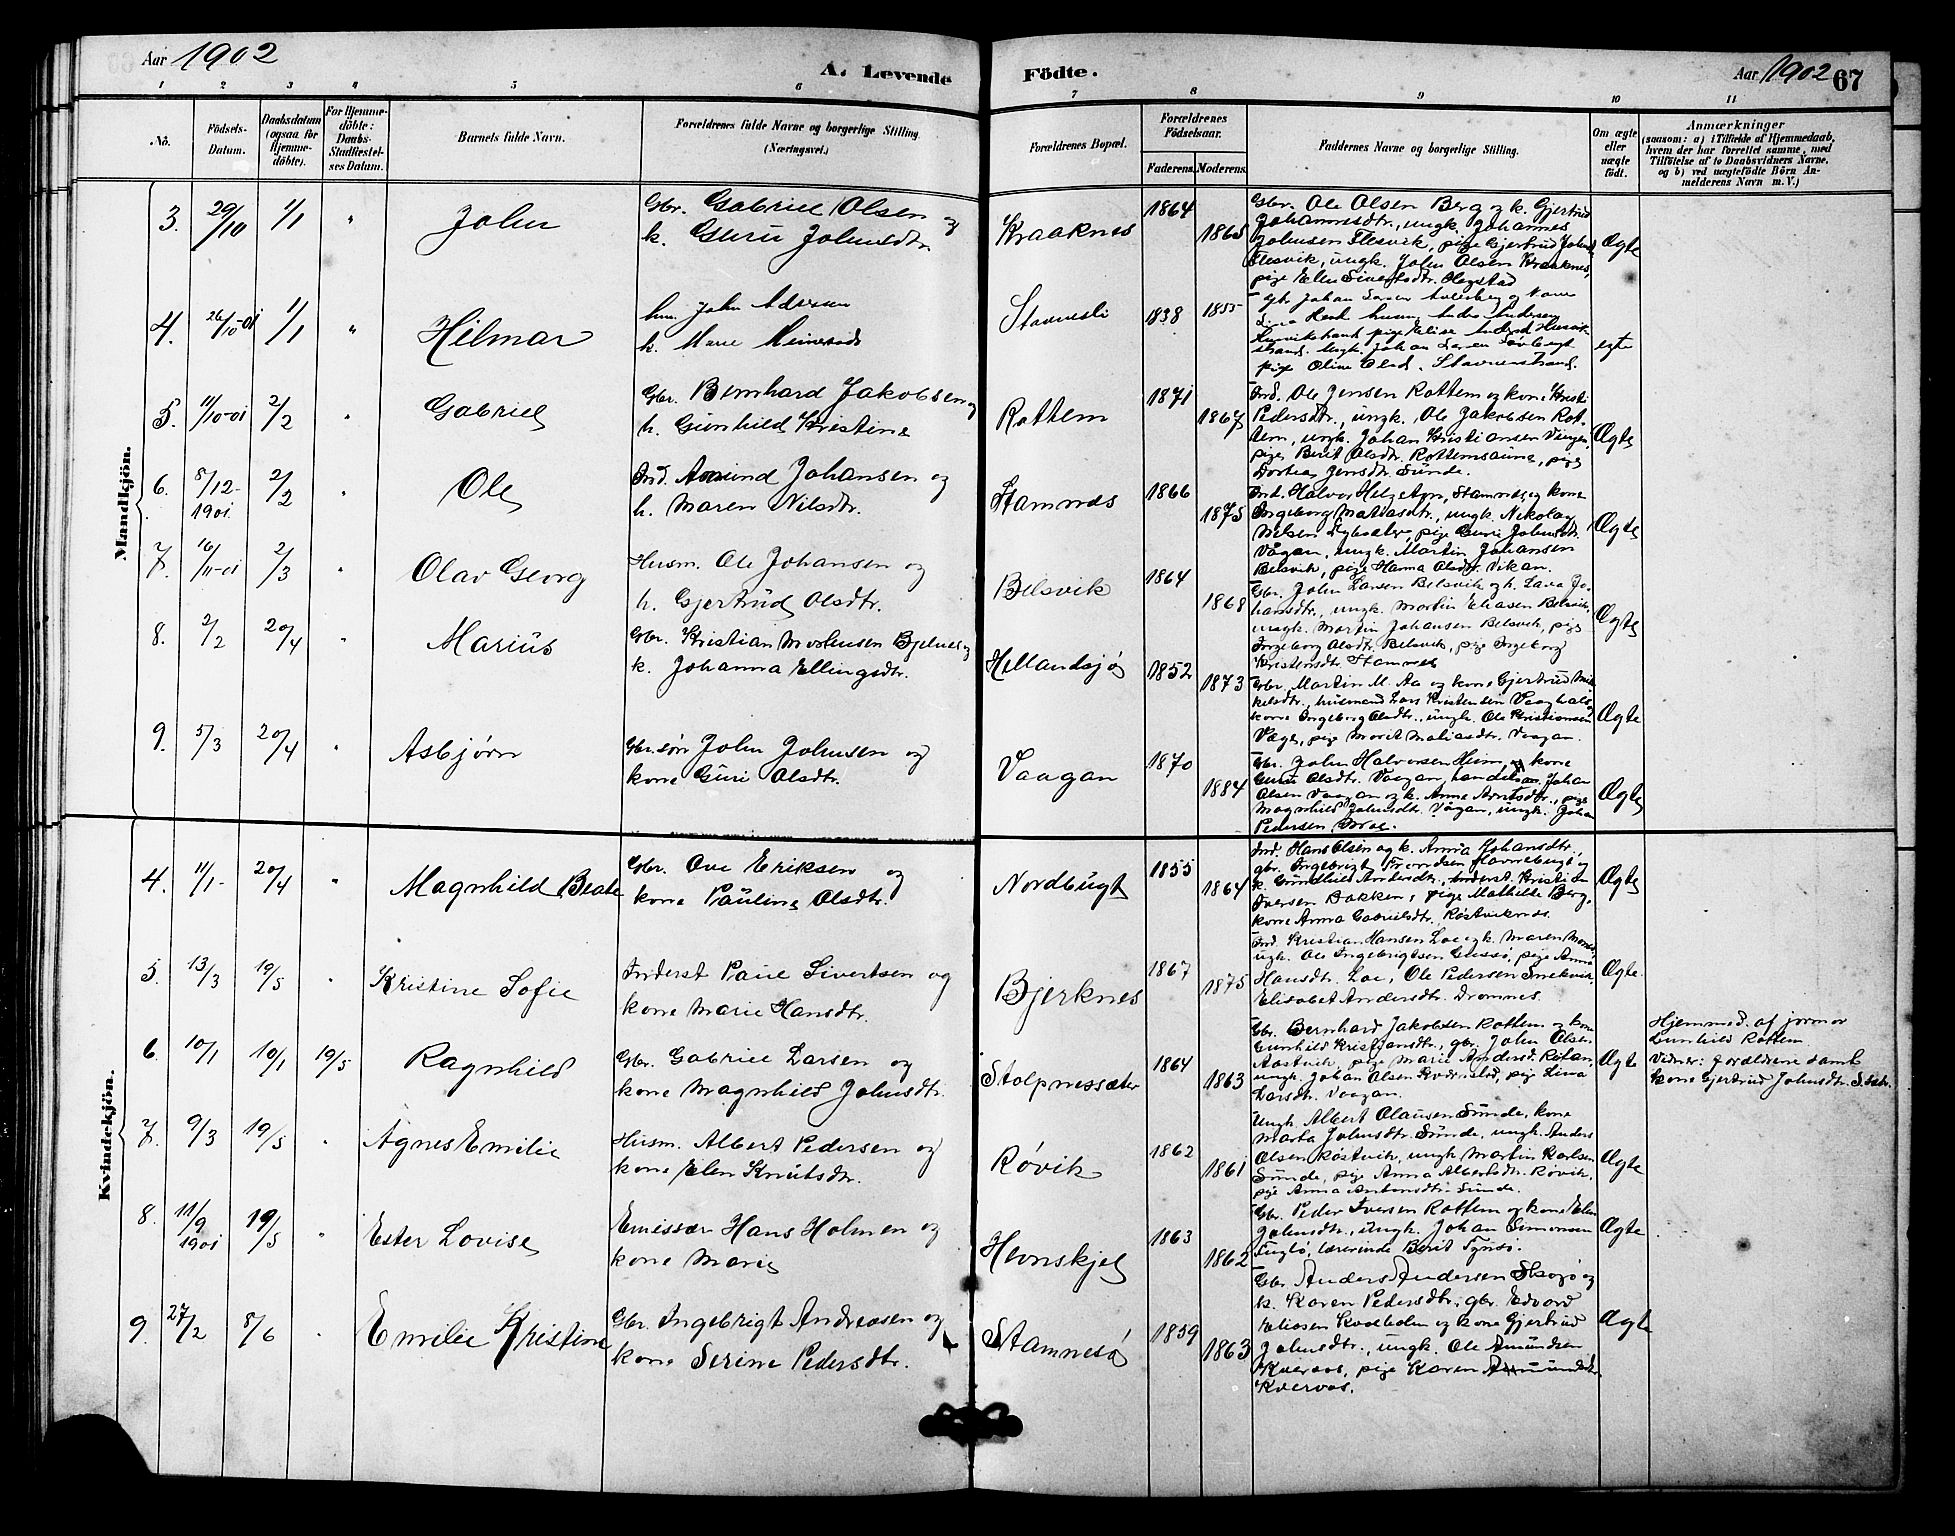 Aar 1902
A. Levende
Födte.
Aar 1902 67
1 2 3 4 5 6 7 8 9 10 11
No.
Födsels-
Datum.
Daabsdatum
(ogsaa for
Hjemme-
döbte).
For Hjemme-
döbte:
Daabs-
Stadfæstel-
ses Datum.
Barnets fulde Navn.
Forældrenes fulde Navne og borgerlige Stilling.
(Næringsvei.)
Forældrenes Bopæl.
Forældrenes
Födselsaar.
Faderens. Moderens.
Faddernes Navne og borgerlige Stilling.
Om ægte
eller
uægte
födt.
Anmærkninger
(saasom: a) i Tilfælde af Hjemmedaab,
hvem der har forrettet samme, med
Tilföielse af to Daabsvidners Navne,
og b) ved uægtefödte Börn An-
melderens Navn m. V.)
Mandkjön.
3. 29/10 1/1 " John
Gbr. Gabriel Olsen og
k. Guru Johnsdtr.
Kraaknes 1864 1865
Gbr. Ole Olsen Berg og k. Gjertrud
Johannesdtr., ungk. Johannes
Johnsen Flesvik, pige Gjertrud Johnsd.
Flesvik, ungk. John Olsen Kraaknes,
pige Elen Sivertsdtr. Hegstad
Ægte
4. 26/10-01 1/1 " Hilmar
hm. John
k. Marie
Stavnesli 1838 1855
Gb. Johan Larsen
pige Oline Olsd. Stavnesstrand.
egte
5. 11/10-01 2/2 " Gabriel
Gbr. Bernhard Jakobsen og
h. Gunhild Kristine
Rottem 1871 1867
Ind. Ole Jensen Rottem og kone Kristi
Pedersdtr., ungk. Ole Jakobsen Rot-
tem, ungk. Johan Kristiansen Vingen
pige Berit Olsdtr. Rottemsaune, pige
Dortea Jensdtr. Sunde.
Ægte
6. 8/12-1901 2/2 " Ole
Ind. Amund Johansen og
h. Maren Nilsdtr.
Stamnes 1866 1875
Ind. Halvor Helgesen, Stamnes og kone
Ingeborg Matiasdtr., ungk. Nikolay
Nilsen, pige Guri Johnsdtr.
Vågan, ungk. Martin Johansen
Belsvik, pige Hanna Olsdtr. Vikan.
Ægte
7. 16/11-01 2/3 " Olav Georg
Husm. Ole Johansen og
h. Gjertrud Olsdtr.
Belsvik 1864 1868
Gbr. John Larsen Belsvik og h. Lava Jo-
hansdtr., ungk. Martin Eliasen Belsvik,
ungk. Martin Johansen Belsvik, pige
Ingeborg Olsdtr. Belsvik, pige Ingeborg
Kristensdtr. Stamnes
Ægte
8. 2/2 20/4 " Marius
Gbr. Kristian Mortensen Bjelnes og
k. Johanna Ellingsdtr.
Hellandsjø 1852 1873
Gbr. Martin M. Aa og kone Gjertrud Mik-
kelsdtr., husmand Lars Kristensen Vaaghals
kone Ingeborg Olsdtr., ungk. Ole Kristiansen
Væge, pige Marit Matiasdtr. Vaagan.
Ægte
9. 5/3 20/4 " Asbjørn
Gbr.søn John Johnsen og
kone Guri Olsdtr.
Vaagan 1870 1884
Gbr. John Halvorsen Heim, kone
Guri Olsdtr. Vaagan, Johan
Olsen Vaagan og k. Anna Arntsdtr., pige
Magnhild Johnsdtr. Vågan, ungk. Johan
Pedersen Moe.
Ægte
Kvindekjön.
4. 11/1 20/4 " Magnhild Beate
Gbr. Ove Eriksen og
kone Pauline Olsdtr.
Nordbugt 1855 1864
Ind. Hans Olsen og k. Anna Johansdtr.,
gbr. Ingebrigt Trondsen og
k. Gundhild Andersdtr., inderst. Kristian
Iversen Bakken, pige Mathilde Berg,
kone Anna Gabrielsdtr. Røstviknes.
Ægte
5 13/3 19/5 " Kristine Sofie
Inderst Paul Sivertsen og
kone Marie Hansdtr.
Bjerknes 1867 1875
Ind. Kristian Hansen Loe og k. Maren
ugk. Ole Ingebrigtsen, pige Anna
Hansdtr. Loe, Ole Pedersen Snekvik,
Elisabet Andersdtr. Dromnes.
Ægte
6 10/1 10/1 19/5 Ragnhild
Gbr. Gabriel Larsen og
kone Magnhild Johnsdtr.
Stolpnessæter 1864 1863
Gbr. Bernhard Jakobsen Rottem og kone
Gunhild Kristiansdtr., gbr. John Olsen
Aastvik, pige Marie Andersd. Røtan,
ungk. Johan Olsen, pige Lina
Larsdtr. Vaagan.
Ægte
Hjemmed. af jormor
Gunhild Rottem.
Vidner: forældrene samt
kone Gjertrud Johnsdtr. S.sæter.
7. 9/3 19/5 " Agnes Emilie
Husm. Albert Pedersen og
kone Elen Knutsdtr.
Røvik 1862 1861
Ungk. Albert Olausen Sunde, kone
Marta Johnsdtr. Sunde, ungk. Anders
Olsen Røstvik, ungk. Martin Karlsen
Sunde, pige Anna Albertsdtr. Røvik,
pige Anna Antonsdtr. Sunde.
Ægte
8. 11/9 1901 19/5 " Ester Lovise
Emissær Hans Holmen og
kone Marie
Hevnskjel 1863 1862
Gbr. Peder Iversen Rottem og kone Elen
Johnsdtr., ungk. Johan Simonsen
Fuglø, lærerinde Berit Fynsø.
Ægte
9. 27/2 8/6 " Emilie Kristine
Gbr. Ingebrigt Andreasen og
kone Serine Pedersdtr.
Stamnesø 1859 1863
Gbr. Anders Andersen Skogø og
k. Karen Pedersdtr., gbr. Edvard
Eliasen og kone Gjertrud
Johnsdtr., ungk. Ole Amundsen
Kvervas, pige Karen Amundsdtr.
Kvervas.
Ægte